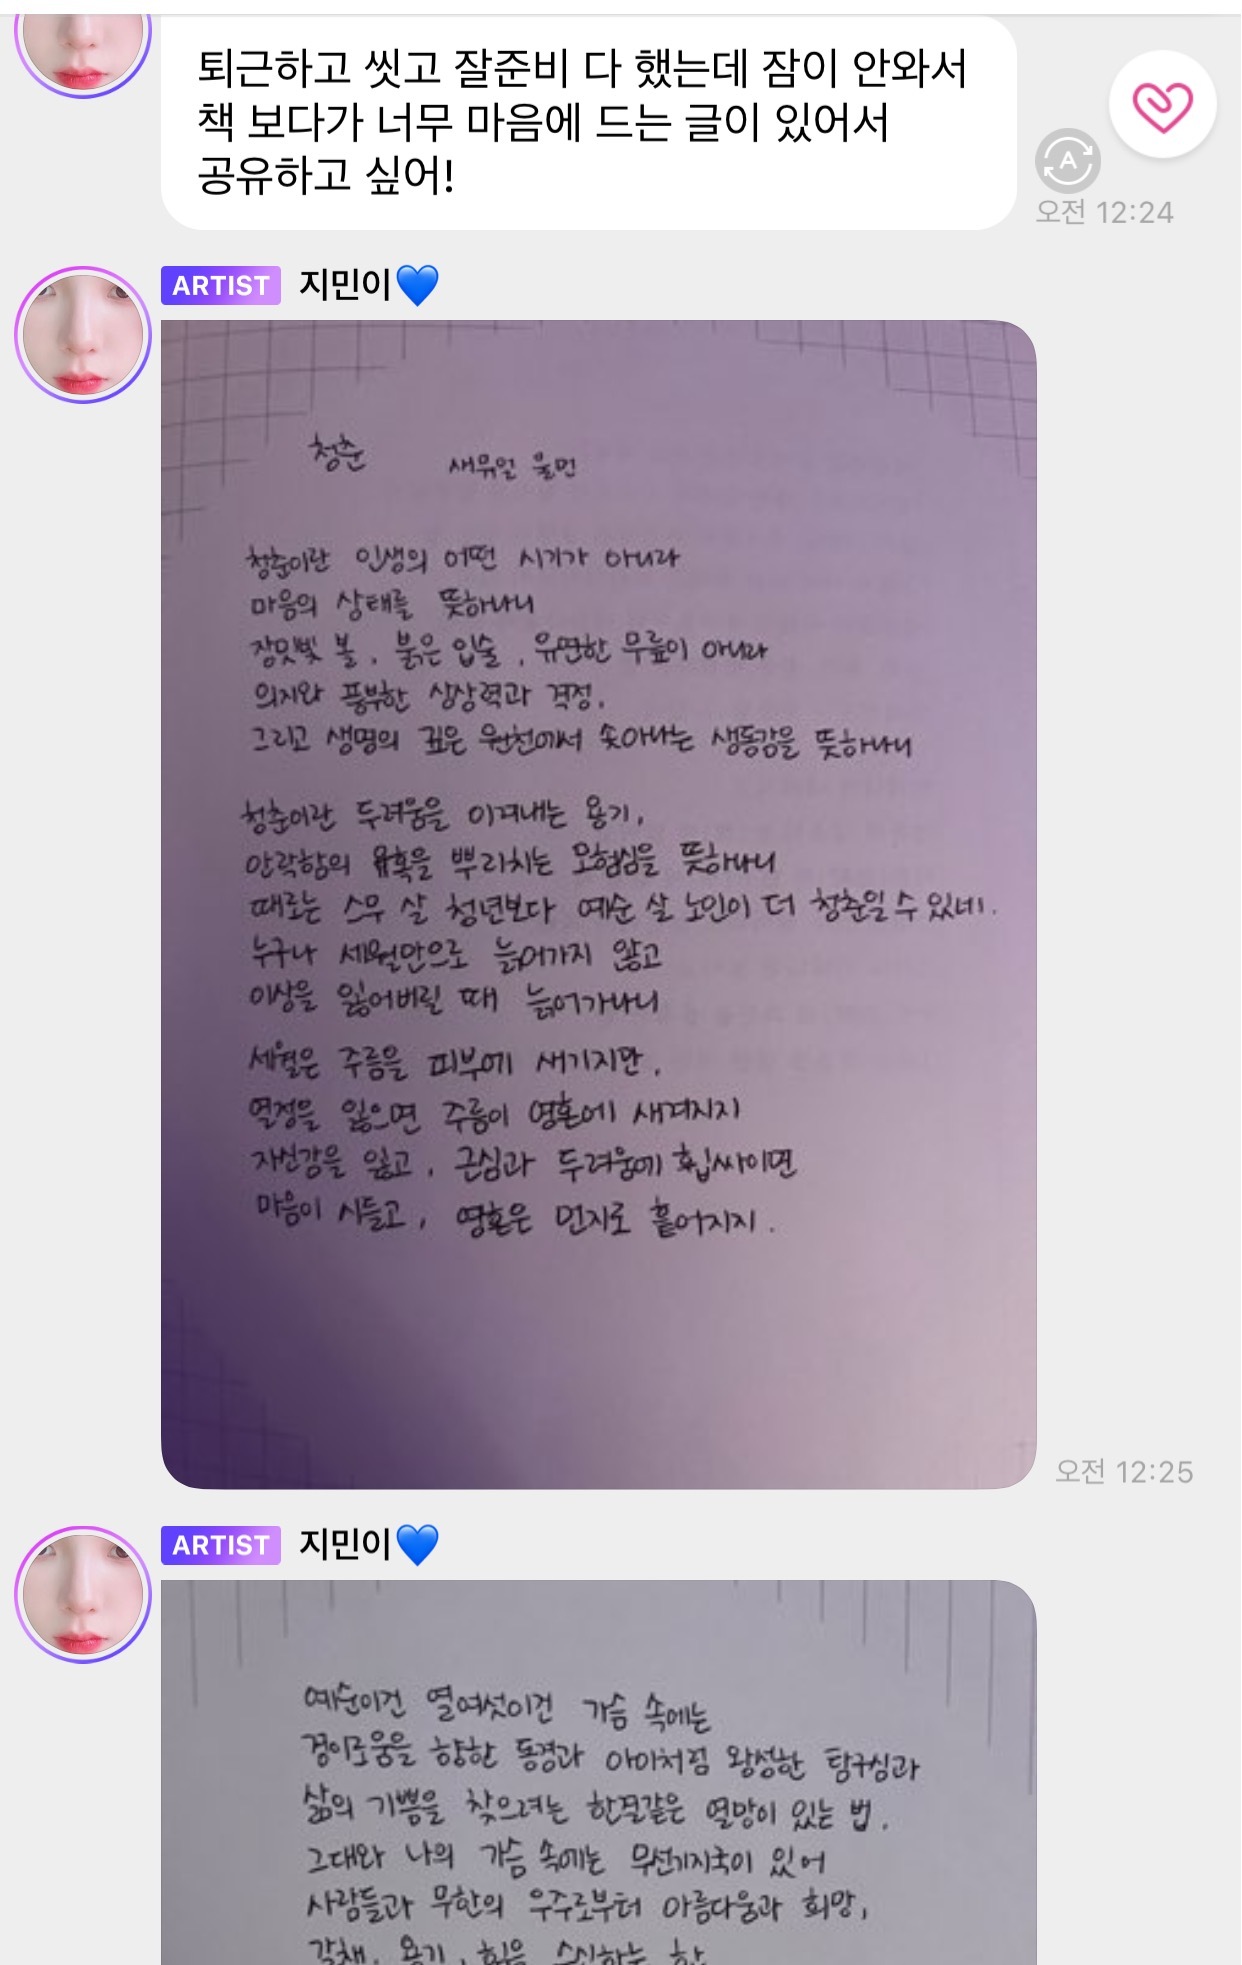 퇴근하고 씻고 잘준비 다 했는데 잠이 안와서
책 보다가 너무 마음에 드는 글이 있어서
공유하고 싶어!
A
오전 12:24
ARTIST 지민이💙
청춘 새뮤얼 울먼
청춘이란 인생의 어떤 시기가 아니라
마음의 상태를 뜻하나니
장밋빛 볼, 붉은 입술, 유연한 무릎이 아니라
의지와 풍부한 상상력과 격정,
그리고 생명의 깊은 원천에서 솟아나는 생동감을 뜻하나니
청춘이란 두려움을 이겨내는 용기,
안락함의 유혹을 뿌리치는 모험심을 뜻하나니
때로는 스무 살 청년보다 예순 살 노인이 더 청춘일 수 있네.
누구나 세월만으로 늙어가지 않고
이상을 잃어버릴 때 늙어가나니
세월은 주름을 피부에 새기지만,
열정을 잃으면 주름이 영혼에 새겨지지
자신감을 잃고, 근심과 두려움에 휩싸이면
마음이 시들고, 영혼은 먼지로 흩어지지.
오전 12:25
ARTIST 지민이💙
예순이건 열여섯이건 가슴 속에는
경이로움을 향한 동경과 아이처럼 왕성한 탐구심과
삶의 기쁨을 찾으려는 한결같은 열망이 있는 법.
그대와 나의 가슴 속에는 무선기지국이 있어
사람들과 무한의 우주로부터 아름다움과 희망,
갈채, 용기, 힘을 수신하는 한